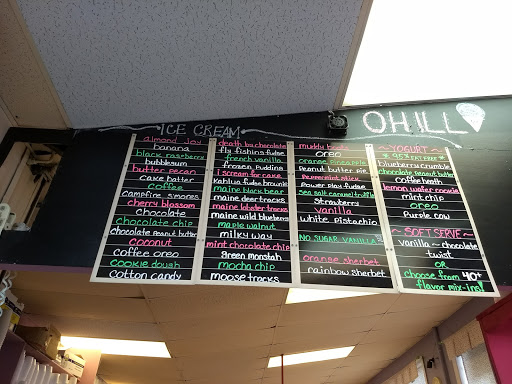 ICE CREAM
OH ILL
almond joy
banana
black raspberry
bubblegum
butter pecan
cake batter
coffee
campfire s'mores
cherry blossom
chocolate
chocolate chip
chocolate peanut butter
coconut
coffee oreo
cookie dough
cotton candy
death by chocolate
fly fishing fudge
french vanilla
frozen pudding
I scream for cake
Kahlua fudge brownie
maine black bear
maine deer tracks
maine lobster tracks
maine wild blueberry
maple walnut
milky way
mint chocolate chip
green monstah
mocha chip
moose tracks
muddy boots
oreo
orange pineapple
peanut butter pie
peppermint stick
power play fudge
sea salt caramel truffle
strawberry
vanilla
white pistachio
NO SUGAR VANILLA
orange sherbet
rainbow sherbet
~ YOGURT ~
blueberry crumble
chocolate peanut butter
coffee heath
lemon wafer cookie
mint chip
oreo
purple cow
~ SOFT SERVE ~
vanilla ~ chocolate
twist
OR
choose from 40+
flavor mix-ins!